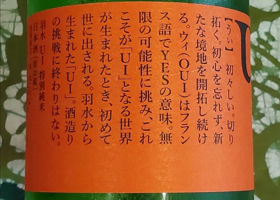 【うい】初々しい。切り
拓く、初心を忘れず、新
たな境地を開拓し続け
る。ウィ(OUI)はフラン
ス語でYESの意味。無
限の可能性に挑み、これ
こそが「UI」となる世界
が生まれたとき、初めて
世に出される。羽水から
生まれた「UI」。酒造り
の挑戦に終わりはない。
羽水 UI 特別純米
日本酒
U